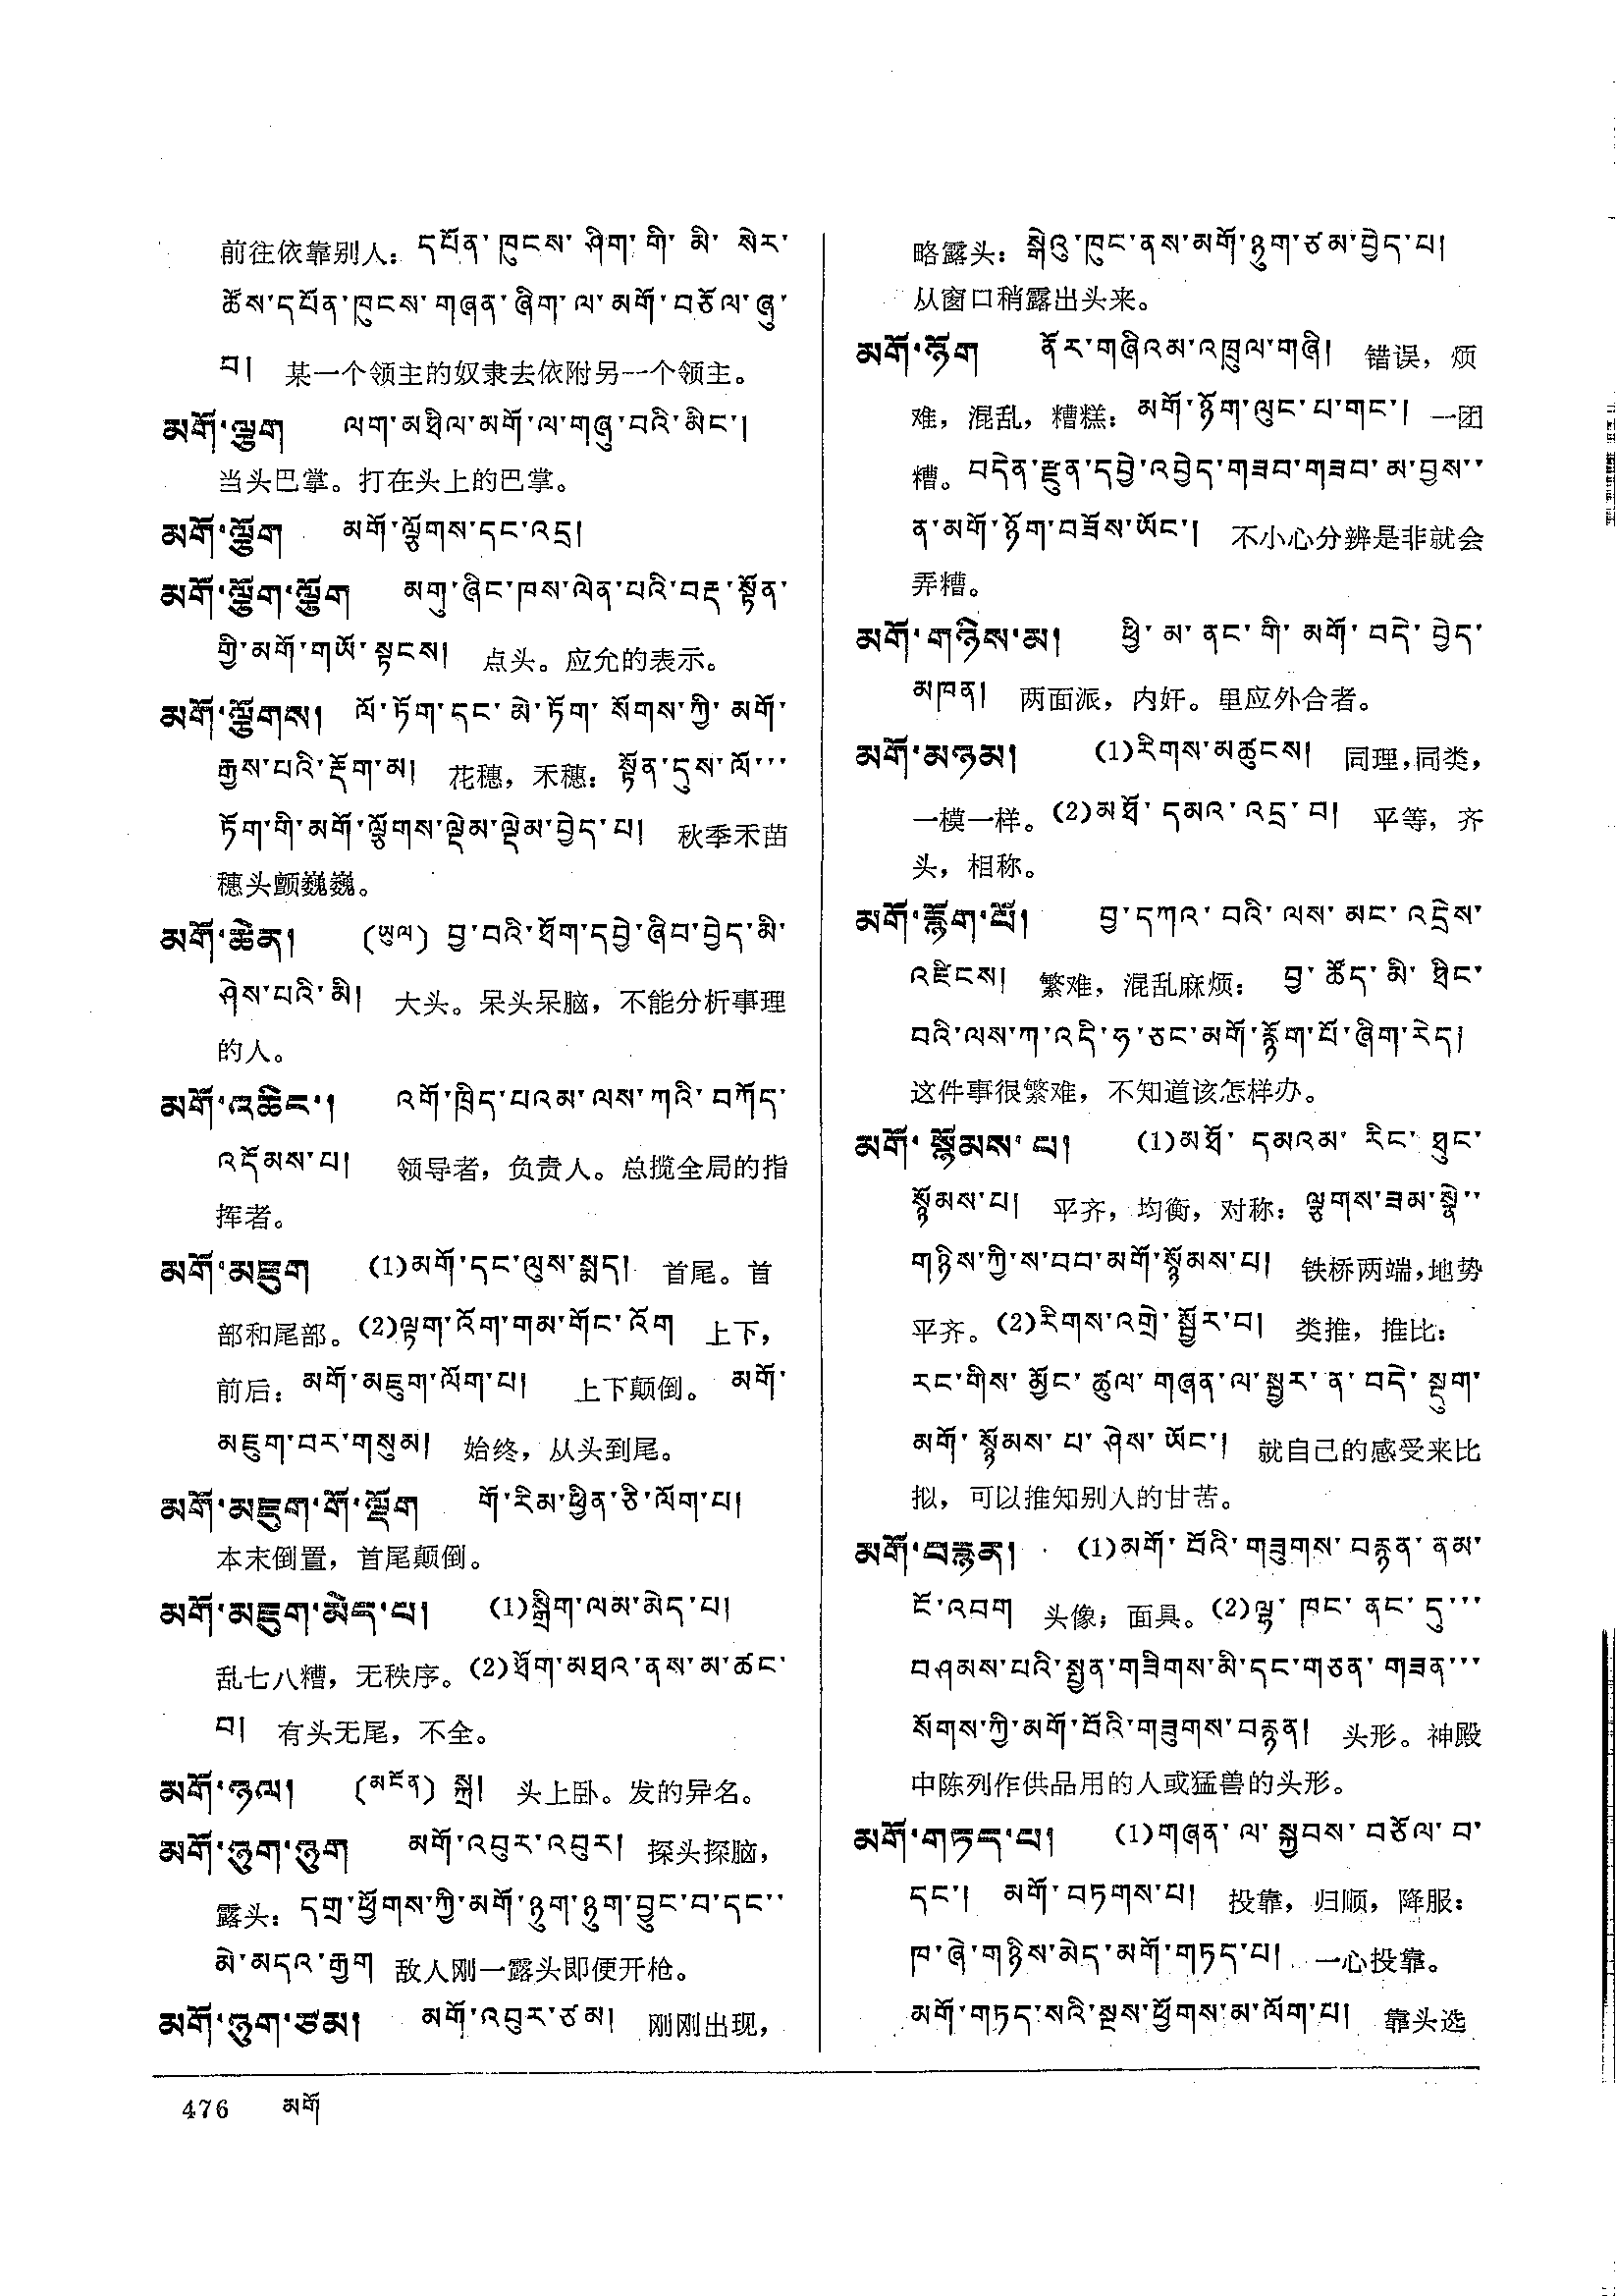 前往依靠别人：དཔོན་ཁུངས་ཤིག་གི་མི་སེར་
ཚོས་དཔོན་ཁུངས་གཞན་ཞིག་ལ་མགོ་བཅོལ་ཞུ་
བ། 某一个领主的奴隶去依附另一个领主。
མགོ་ལྕུག ལག་མཐིལ་མགོ་ལ་གཞུ་བའི་མིང་།
当头巴掌。打在头上的巴掌。
མགོ་ལྕོག མགོ་ལྕོགས་དང་འདྲ།
མགོ་ལྕོག་ལྕོག མགུ་ཞིང་ཁས་ལེན་པའི་བརྡ་སྟོན་
གྱི་མགོ་གཡོ་སྟངས། 点头。应允的表示。
མགོ་ལྕོགས། ལོ་ཏོག་དང་མེ་ཏོག་སོགས་ཀྱི་མགོ་
རྒྱས་པའི་རྡོག་མ། 花穗，禾穗：སྟོན་དུས་ལོ་་་
ཏོག་གི་མགོ་ལྕོགས་ལྡེམ་ལྡེམ་བྱེད་པ། 秋季禾苗
穗头颤巍巍。
མགོ་ཆེན། (ཡུལ) བྱ་བའི་ཐོག་དབྱེ་ཞིབ་བྱེད་མི་
ཤེས་པའི་མི། 大头。呆头呆脑，不能分析事理
的人。
མགོ་འཆིང་། འགོ་ཁྲིད་པའམ་ལས་ཀའི་བཀོད་
འདོམས་པ། 领导者，负责人。总揽全局的指
挥者。
མགོ་མཇུག (1)མགོ་དང་ལུས་སྨད། 首尾。首
部和尾部。(2)ལྟག་འོག་གམ་གོང་འོག 上下，
前后：མགོ་མཇུག་ལོག་པ། 上下颠倒。 མགོ་
མཇུག་བར་གསུམ། 始终，从头到尾。
མགོ་མཇུག་གོ་ལྡོག གོ་རིམ་ཕྱིན་ཅི་ལོག་པ།
本末倒置，首尾颠倒。
མགོ་མཇུག་མེད་པ། (1)སྒྲིག་ལམ་མེད་པ།
乱七八糟，无秩序。(2)ཐོག་མཐའ་ནས་མ་ཚང་
བ། 有头无尾，不全。
མགོ་ཉལ། (མངོན) སྐྲ། 头上卧。发的异名。
མགོ་ཉུག་ཉུག མགོ་འབུར་འབུར། 探头探脑，
露头：དགྲ་ཕྱོགས་ཀྱི་མགོ་ཉུག་ཉུག་བྱུང་བ་དང་་
མེ་མདའ་རྒྱག 敌人刚一露头即便开枪。
མགོ་ཉུག་ཙམ། མགོ་འབུར་ཙམ། 刚刚出现，
略露头：སྒེའུ་ཁུང་ནས་མགོ་ཉུག་ཙམ་བྱེད་པ།
从窗口稍露出头来。
མགོ་ཉོག ནོར་གཞིའམ་འཁྲུལ་གཞི། 错误，烦
难，混乱，糟糕：མགོ་ཉོག་ལུང་པ་གང་། 一团
糟。བདེན་རྫུན་དབྱེ་འབྱེད་གཟབ་གཟབ་མ་བྱས་་
ན་མགོ་ཉོག་བཟོས་ཡོང་། 不小心分辨是非就会
弄糟。
མགོ་གཉིས་མ། ཕྱི་མ་ནང་གི་མགོ་བདེ་བྱེད་
མཁན། 两面派，内奸。里应外合者。
མགོ་མཉམ། (1)རིགས་མཚུངས། 同理，同类，
一模一样。(2)མཐོ་དམའ་འདྲ་བ། 平等，齐
头，相称。
མགོ་རྙོག་པོ། བྱ་དཀའ་བའི་ལས་མང་འདྲེས་
འཛིངས། 繁难，混乱麻烦： བྱ་ཚོད་མི་ཐིང་
བའི་ལས་ཀ་འདི་ཧ་ཅང་མགོ་རྙོག་པོ་ཞིག་རེད།
这件事很繁难，不知道该怎样办。
མགོ་སྙོམས་པ། (1)མཐོ་དམའམ་རིང་ཐུང་
སྙོམས་པ། 平齐，均衡，对称：ལྕགས་ཟམ་སྣེ་་
གཉིས་ཀྱི་ས་བབ་མགོ་སྙོམས་པ། 铁桥两端，地势
平齐。(2)རིགས་འགྲེ་སྦྱོར་བ། 类推，推比：
རང་གིས་མྱོང་ཚུལ་གཞན་ལ་སྦྱར་ན་བདེ་སྡུག་
མགོ་སྙོམས་པ་ཤེས་ཡོང་། 就自己的感受来比
拟，可以推知别人的甘苦。
མགོ་བརྙན། (1)མགོ་བོའི་གཟུགས་བརྙན་ནམ་
ངོ་འབག 头像；面具。(2)ལྷ་ཁང་ནང་དུ་་་
བཤམས་པའི་སྤྱན་གཟིགས་མི་དང་གཅན་གཟན་་་
སོགས་ཀྱི་མགོ་བོའི་གཟུགས་བརྙན། 头形。神殿
中陈列作供品用的人或猛兽的头形。
མགོ་གཏད་པ། (1)གཞན་ལ་སྐྱབས་བཅོལ་བ་
དང་། མགོ་བཏགས་པ། 投靠，归顺，降服：
ཁ་ཞེ་གཉིས་མེད་མགོ་གཏད་པ། 一心投靠。
མགོ་གཏད་སའི་སྔས་ཕྱོགས་མ་ལོག་པ། 靠头选
476 མགོ